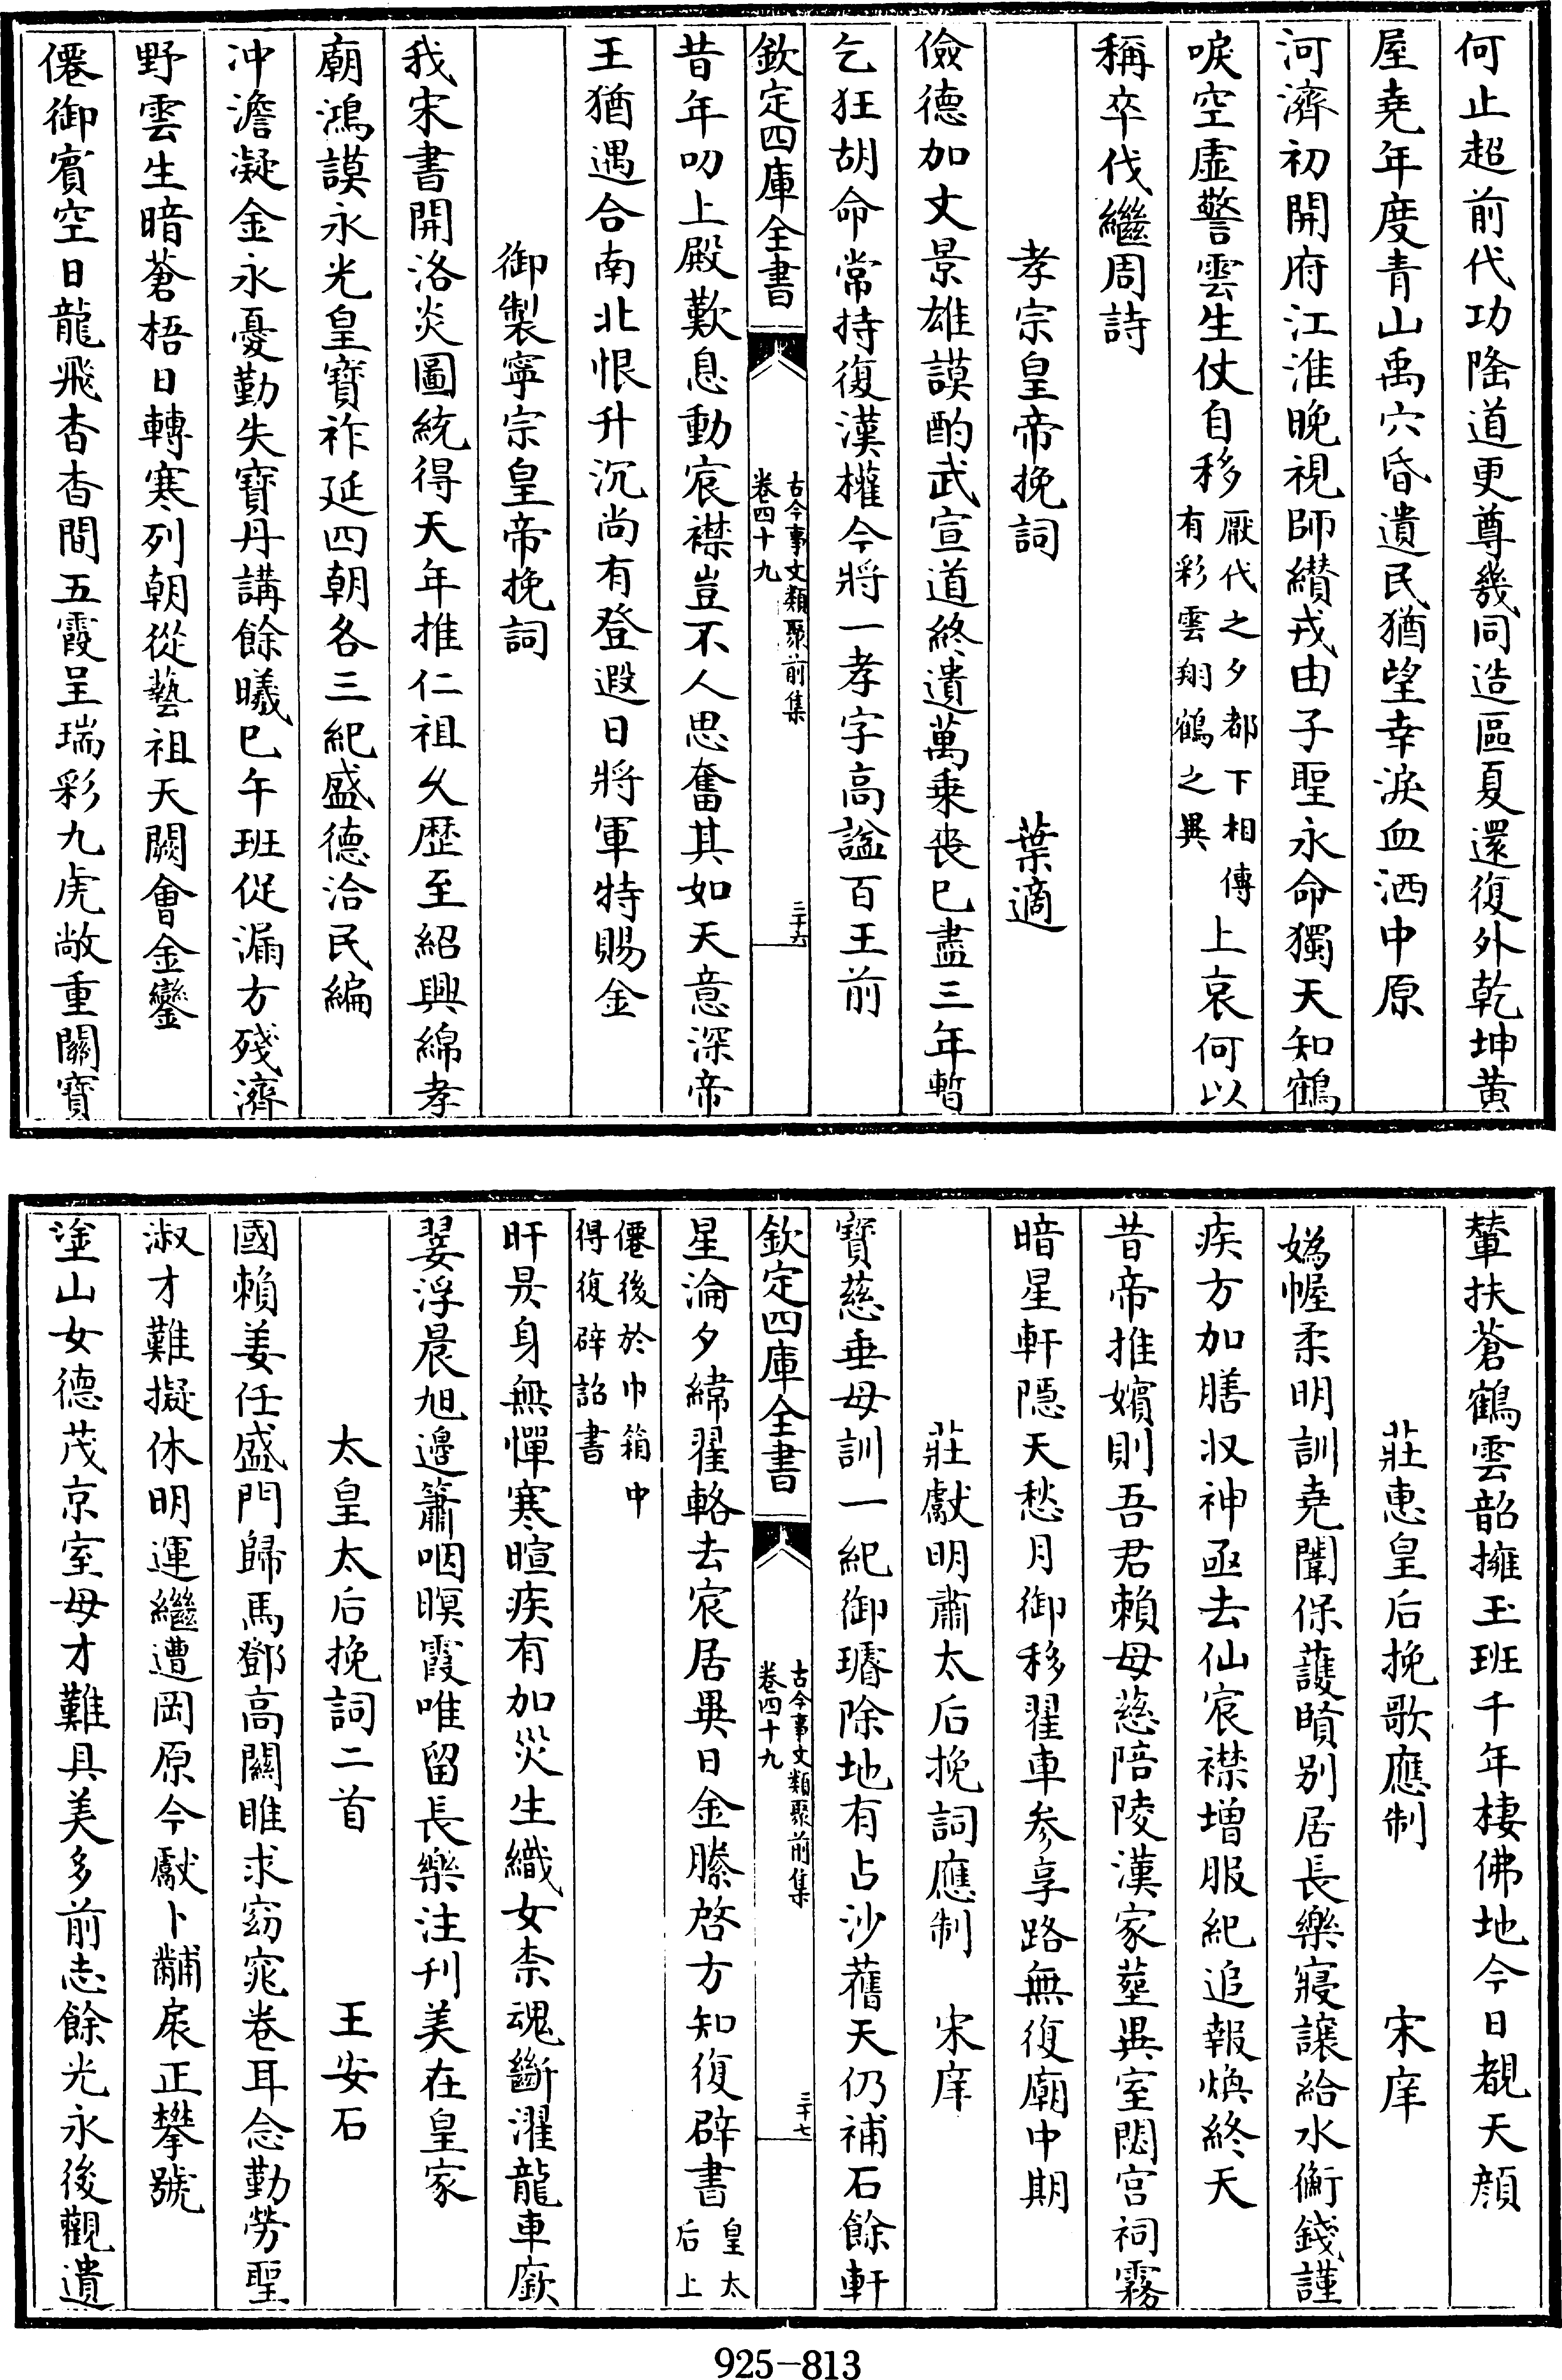 何止超前代功隆道更尊幾同造區夏還復外乾坤黄
屋堯年度青山禹穴昏遺民猶望幸淚血洒中原
河濟初開府江淮晚視師纘戎由子聖永命獨天知鶴
唳空虛警雲生仗自移厭代之夕都下相傳有彩雲翔鶴之異上哀何以
稱卒伐繼周詩
孝宗皇帝挽詞 葉適
儉德加文景雄謨酌武宣道終遺萬乗喪已盡三年暫
乞狂胡命常持復漢權今將一孝字高謚百王前
欽定四庫全書 古今事文類聚前集 卷四十九 三十六
昔年叨上殿歎息動宸襟豈不人思奮其如天意深帝
王猶遇合南北恨升沉尚有登遐日將軍特賜金
御製寧宗皇帝挽詞
我宋書開洛炎圖統得天年推仁祖乆歴至紹興綿孝
廟鴻謨永光皇寳祚延四朝各三紀盛德洽民編
冲澹凝金永憂勤失寳丹講餘曦巳午班促漏方殘濟
野雲生暗蒼梧日轉寒列朝從藝祖天闕會金鑾
僊御賓空日龍飛杳杳間五霞呈瑞彩九虎敞重關寳
輦扶蒼鶴雲韶擁玉班千年棲佛地今日覩天顔
莊惠皇后挽歌應制 宋庠
嬀幄柔明訓堯闈保護賾别居長樂寢讓給水衡錢謹
疾方加膳収神亟去仙宸襟増服紀追報煥終天
昔帝推嬪則吾君賴母慈陪陵漢家塟異室閟宫祠霧
暗星軒隠天愁月御移翟車参享路無復廟中期
莊獻明肅太后挽詞應制 宋庠
寳慈垂母訓一紀御璿除地有占沙舊天仍補石餘軒
欽定四庫全書 古今事文類聚前集 卷四十九 三十七
星淪夕緯翟輅去宸居異日金縢啓方知復辟書皇太后上
僊後於巾箱中得復辟詔書
旰昃身無憚寒暄疾有加災生織女柰魂斷濯龍車廞
翣浮晨旭邊簫咽暝霞唯留長樂注刋美在皇家
太皇太后挽詞二首 王安石
國賴姜任盛門歸馬鄧高關雎求窈窕卷耳念勤勞聖
淑才難擬休明運繼遭岡原今獻卜黼扆正攀號
塗山女德茂京室母才難具美多前志餘光永後觀遺
925-813